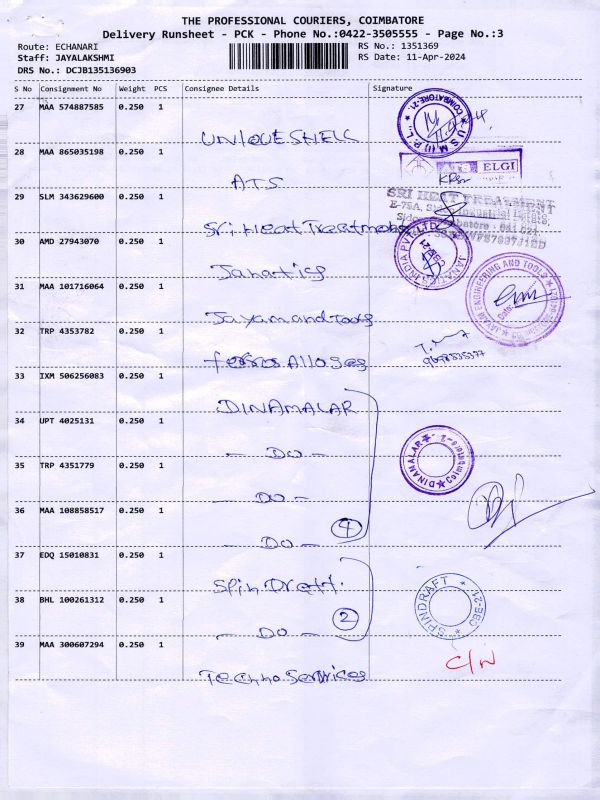 THE PROFESSIONAL COURIERS, COIMBATORE
Delivery Runsheet - PCK - Phone No.:0422-3505555 - Page No.:3
Route: ECHANARI RS No.: 1351369
Staff: JAYALAKSHMI RS Date: 11-Apr-2024
DRS No.: DCJB135136903
S No Consignment No Weight PCS Consignee Details Signature
27 MAA 574887585 0.250 1
UNIQUE SHELL
COIMBATORE-21
U S M (I) P. L
28 MAA 865035198 0.250 1
ELGI
ATS
29 SLM 343629600 0.250 1
SRI HEAT TREATMENT
Sri Heat Treatment
30 AMD 27943070 0.250 1
INDIA PVT. LTD
Janatics
31 MAA 101716064 0.250 1
JAYAM ENGINEERING AND TOOLS
Jayam and Tools
32 TRP 4353782 0.250 1
Ferros Alloges
33 IXM 506256083 0.250 1
DINAMALAR
34 UPT 4025131 0.250 1
DINAMALAR
- DO -
35 TRP 4351779 0.250 1
- DO -
36 MAA 108858517 0.250 1
4
- DO -
37 EDQ 15010831 0.250 1
Spin Drett.
38 BHL 100261312 0.250 1
SPINDRAFT
CBE-21
2
- DO -
39 MAA 300607294 0.250 1
C/N
Techno Services